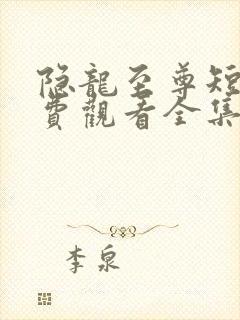 隐龍至尊短
費觀看全集
李泉